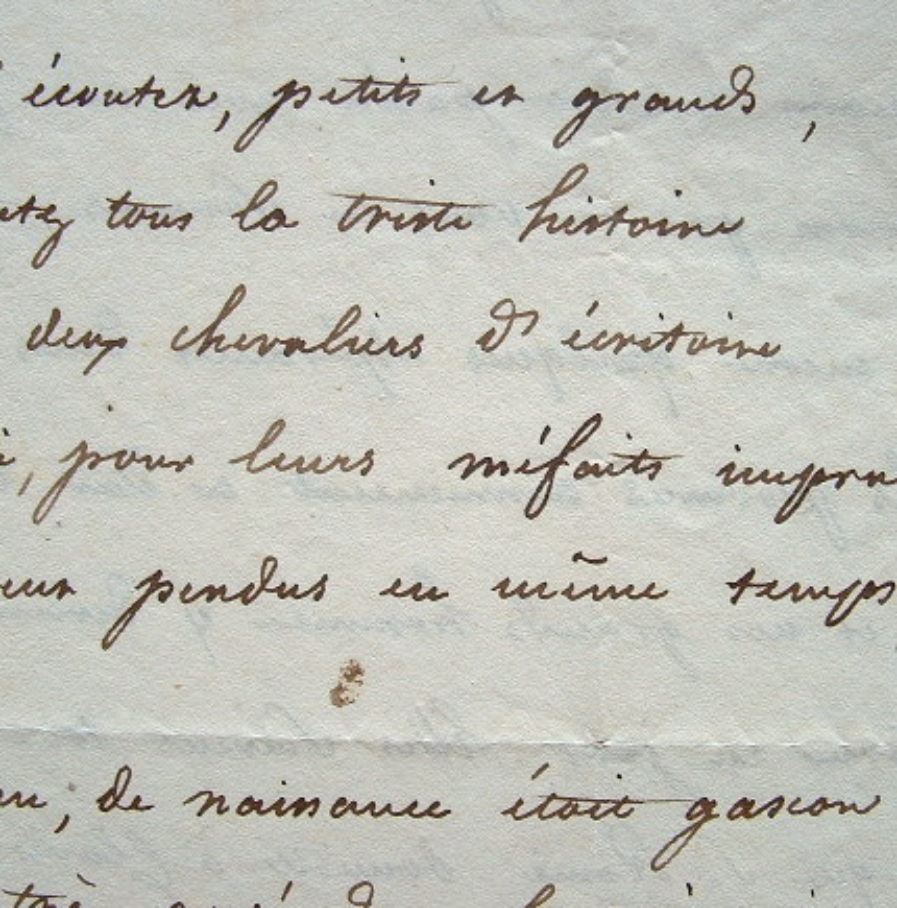 écoutez, petits et grands,
tez tous la triste histoire
deux chevaliers d'écritoire
i, pour leurs méfaits impru
pendus en même temps
de naissance étoit gascon